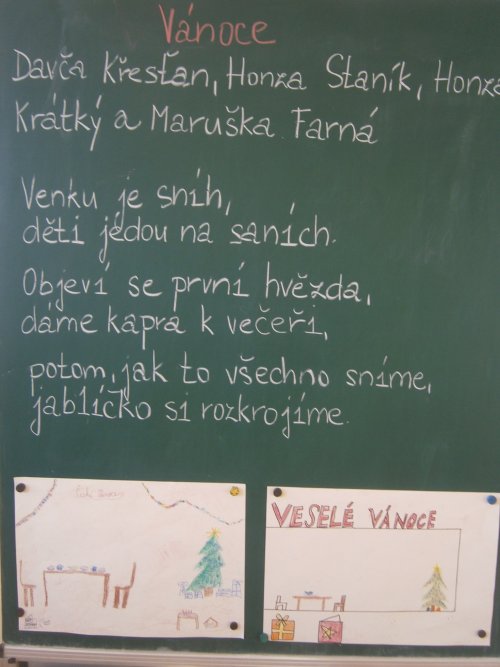 Vánoce
Davča Křesťan, Honza Staník, Honza
Krátký a Maruška Farná
Venku je sníh,
děti jédou na saních.
Objeví se první hvězda,
dáme kapra k večeři,
potom, jak to všechno sníme,
jablíčko si rozkrojíme.
VESELÉ VÁNOCE